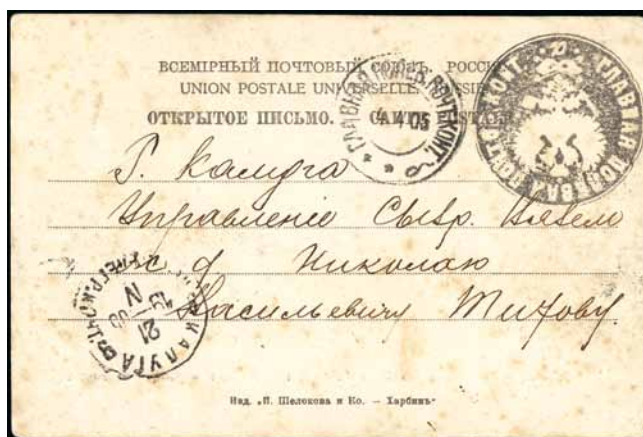 ВСЕМІРНЫЙ ПОЧТОВЫЙ СОЮЗЪ. РОССІЯ
UNION POSTALE UNIVERSELLE. RUSSIE
ОТКРЫТОЕ ПИСЬМО. CARTE POSTALE
ГЛАВНАЯ ПОЛЕВ. ПОЧТ. КОНТ.
4 4 05
ГЛАВНАЯ ПОЛЕВАЯ ПОЧТ. КОНТ.
Г. Калуга
Управленіе Сызр. Вязем
Николаю
Васильевичу Титову.
КАЛУГА
21
IV
Изд. „П. Щелокова и Ко. – Харбинъ"